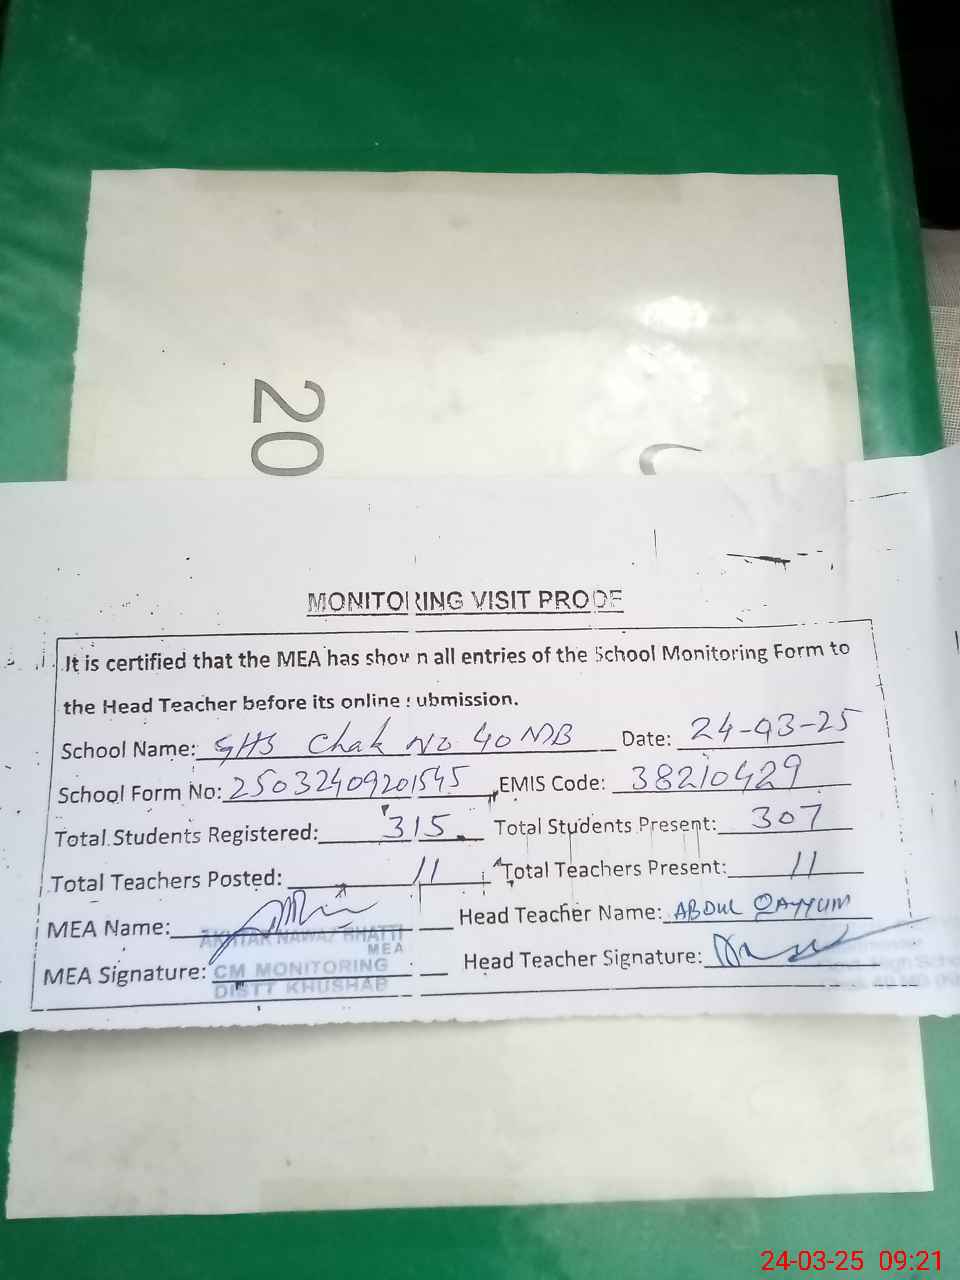 20
MONITORING VISIT PROOF
It is certified that the MEA has shown all entries of the School Monitoring Form to
the Head Teacher before its online submission.
School Name: GHS Chak No 40 MB Date: 24-03-25
School Form No: 25032409201545 EMIS Code: 38210429
Total Students Registered: 315 Total Students Present: 307
Total Teachers Posted: 11 Total Teachers Present: 11
MEA Name: Head Teacher Name: ABDUL QAYYUM
AKHTAR NAWAZ BHATTI
MEA
MEA Signature: CM MONITORING Head Teacher Signature:
DISTT KHUSHAB
24-03-25 09:21